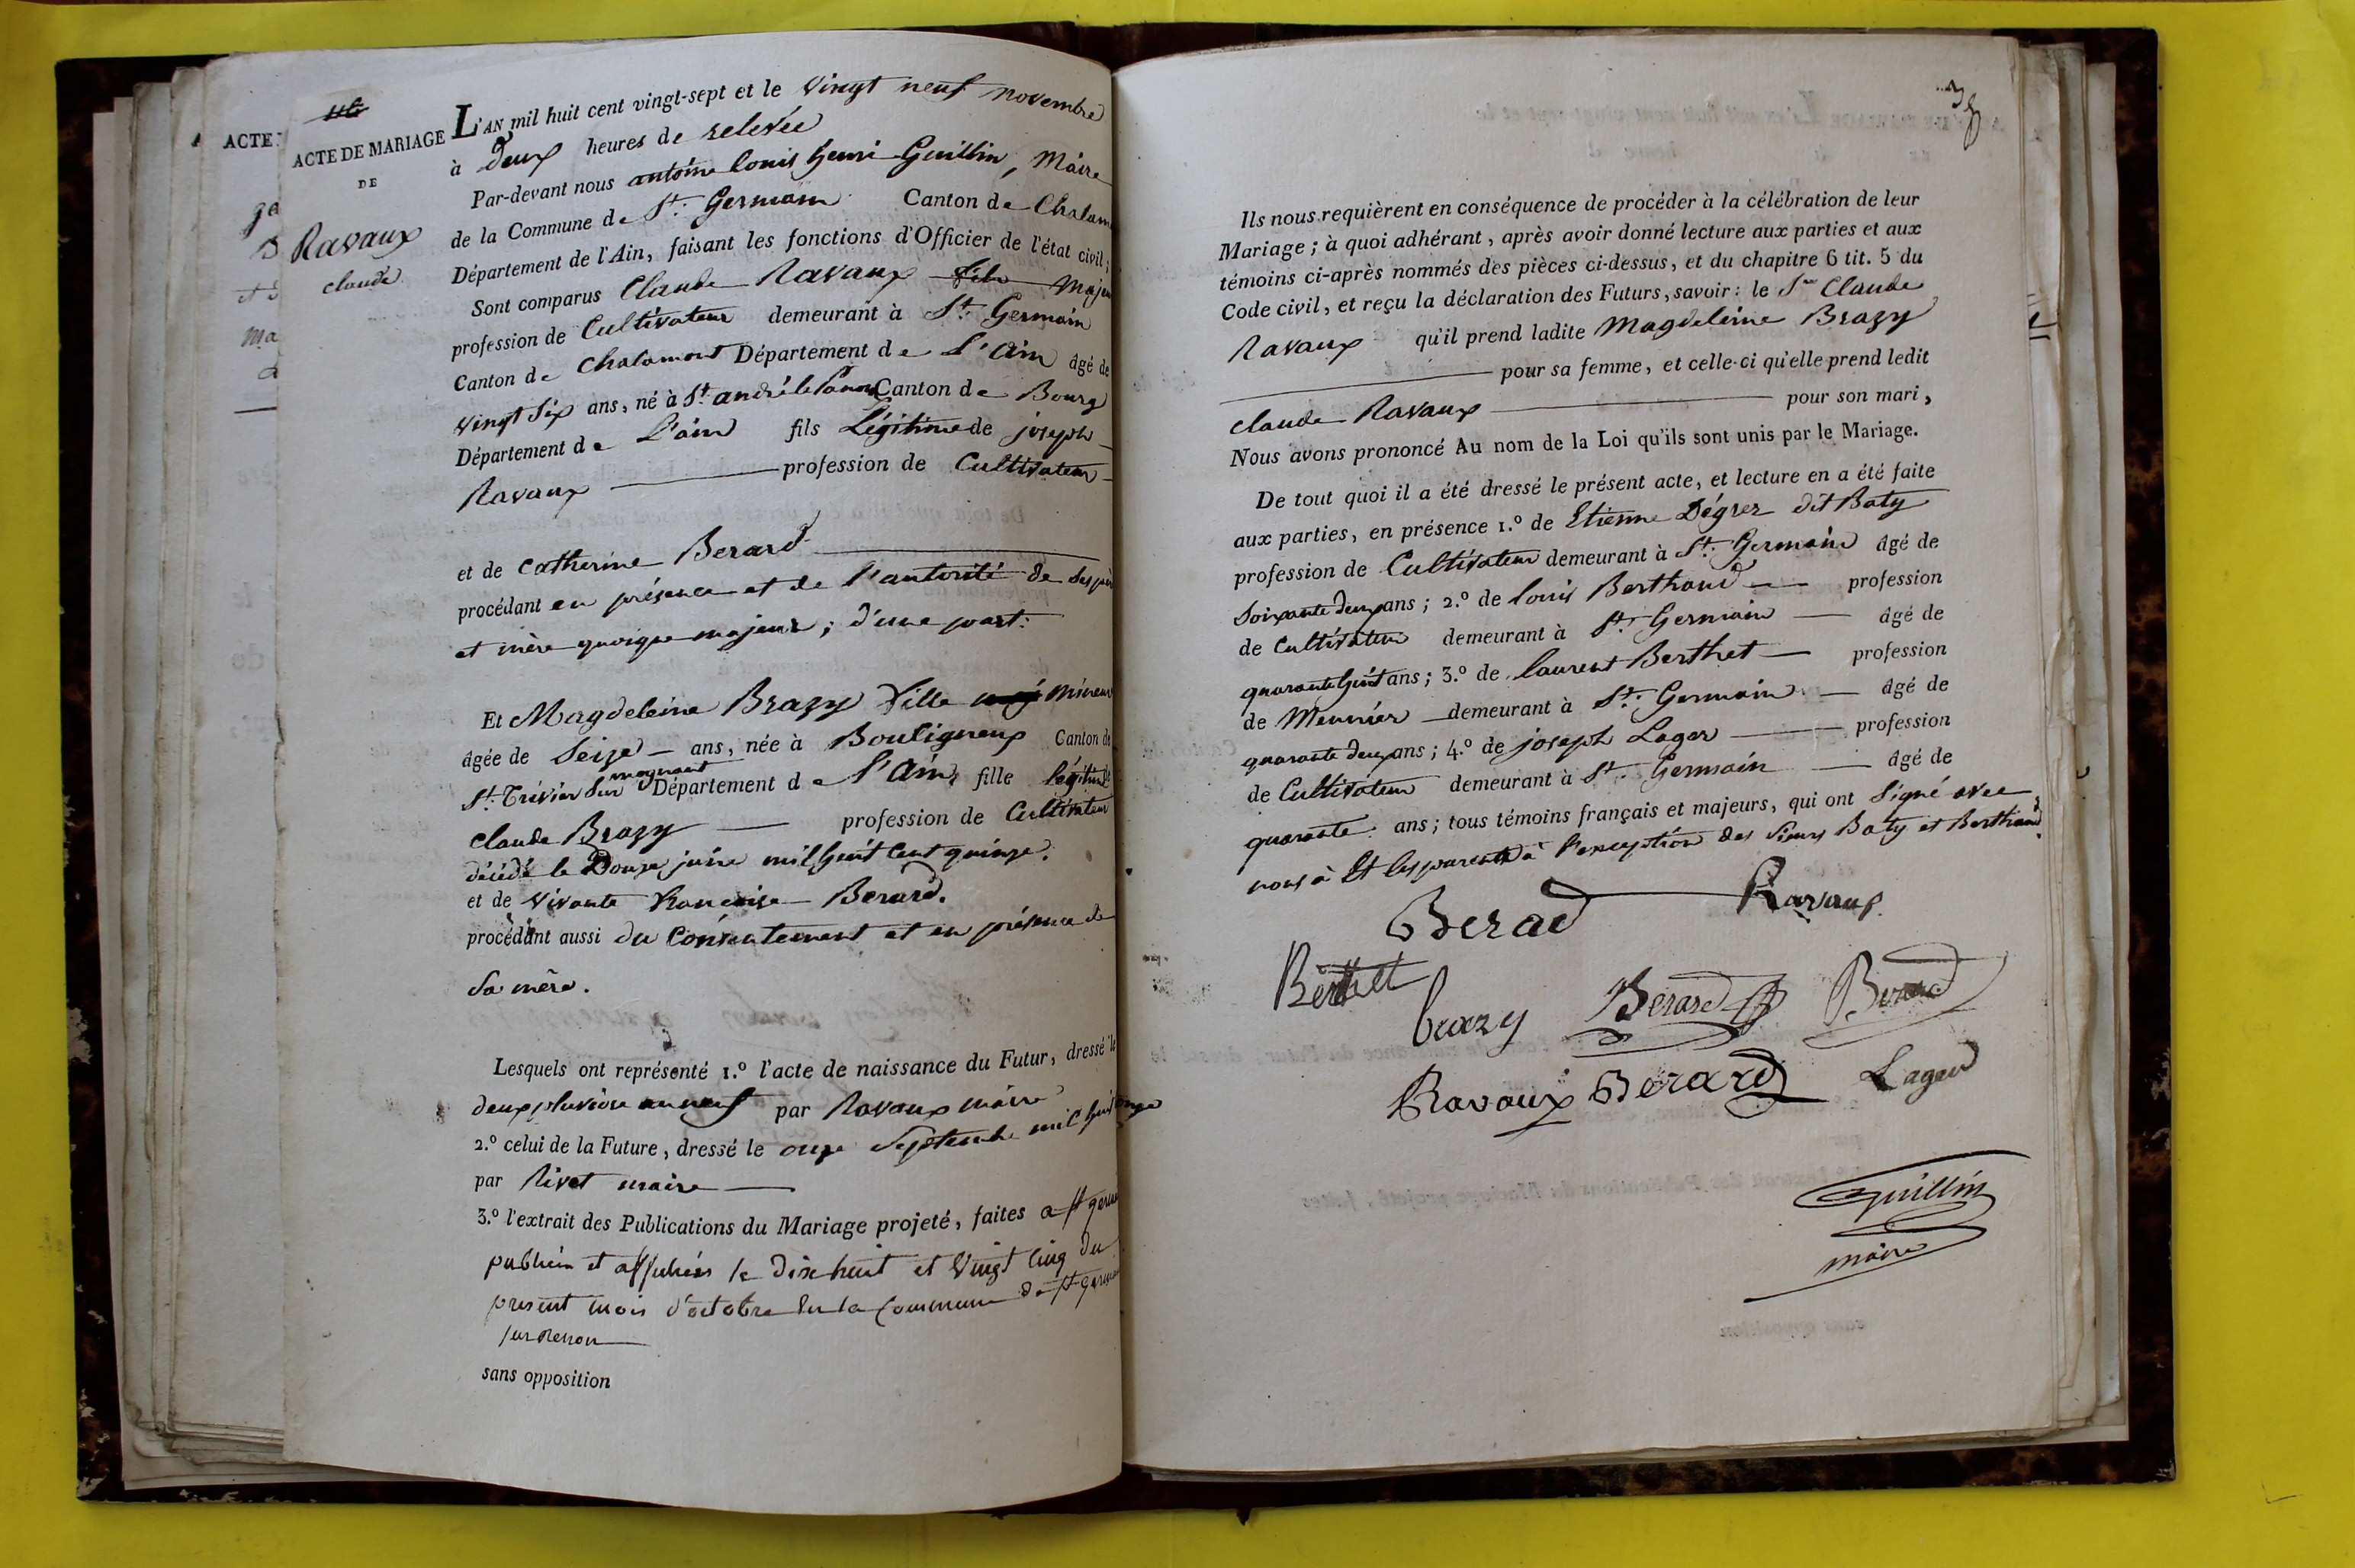 ACTE
ACTE DE MARIAGE
DE
Ravaux
claude
L'AN mil huit cent vingt-sept et le vingt neuf novembre
à Deux heures de relevée
Par-devant nous antoine louis henri Guillin, Maire
de la Commune de St. Germain Canton de Chalam
Département de l'Ain, faisant les fonctions d'Officier de l'état civil;
Sont comparus Claude Ravaux fils Majeu
profession de Cultivateur demeurant à St. Germain
Canton de Chalamont Département de L'Ain âgé de
vingt six ans, né à St. andré le Canton de Bourg
Département de L'ain fils Légitime de joseph
Ravaux profession de Cultivateur
et de Catherine Berard
procédant en présence et de l'autorité de ses pèr
et mère quoique majeur; d'une part:
Et Magdeleine Brazy fille Mineur
âgée de Seize ans, née à Bouligneux Canton de
St. Trivier Sur mognant Département de L'Ain, fille légitime
Claude Brazy profession de Cultivateur
décédé le Douze juin mil huit cent quinze.
et de vivante francoise Berard.
procédant aussi du Consentement et en présence de
Sa mère.
Lesquels ont représenté 1.º l'acte de naissance du Futur, dressé le
deux pluviôse an neuf par Ravaux maire
2.º celui de la Future, dressé le onze Septembre mil huit onze
par Rivet maire
3.º l'extrait des Publications du Mariage projeté, faites a St germ
publiées et affichées le dix huit et Vingt Cinq du
present mois d'octobre en la Commune de St germ
sur Renon
sans opposition
Ils nous requièrent en conséquence de procéder à la célébration de leur
Mariage; à quoi adhérant, après avoir donné lecture aux parties et aux
témoins ci-après nommés des pièces ci-dessus, et du chapitre 6 tit. 5 du
Code civil, et reçu la déclaration des Futurs, savoir: le Sr Claude
Ravaux qu'il prend ladite Magdeleine Brazy
pour sa femme, et celle-ci qu'elle prend ledit
Claude Ravaux pour son mari,
Nous avons prononcé Au nom de la Loi qu'ils sont unis par le Mariage.
De tout quoi il a été dressé le présent acte, et lecture en a été faite
aux parties, en présence 1.º de Etienne Dégrez dit Baty
profession de Cultivateur demeurant à St. Germain âgé de
Soixante deux ans; 2.º de louis Berthaud profession
de Cultivateur demeurant à St. Germain âgé de
quarante huit ans; 3.º de laurent Berthet profession
de Meunier demeurant à St. Germain âgé de
quarante deux ans; 4.º de joseph Lager profession
de Cultivateur demeurant à St. Germain âgé de
quarante ans; tous témoins français et majeurs, qui ont Signé avec
nous à Et les parents à l'exception des Sieurs Baty et Berthaud
Berad Ravaux
Berthet brazy Berard Berard
Ravaux Berard Lager
Guillin
maire